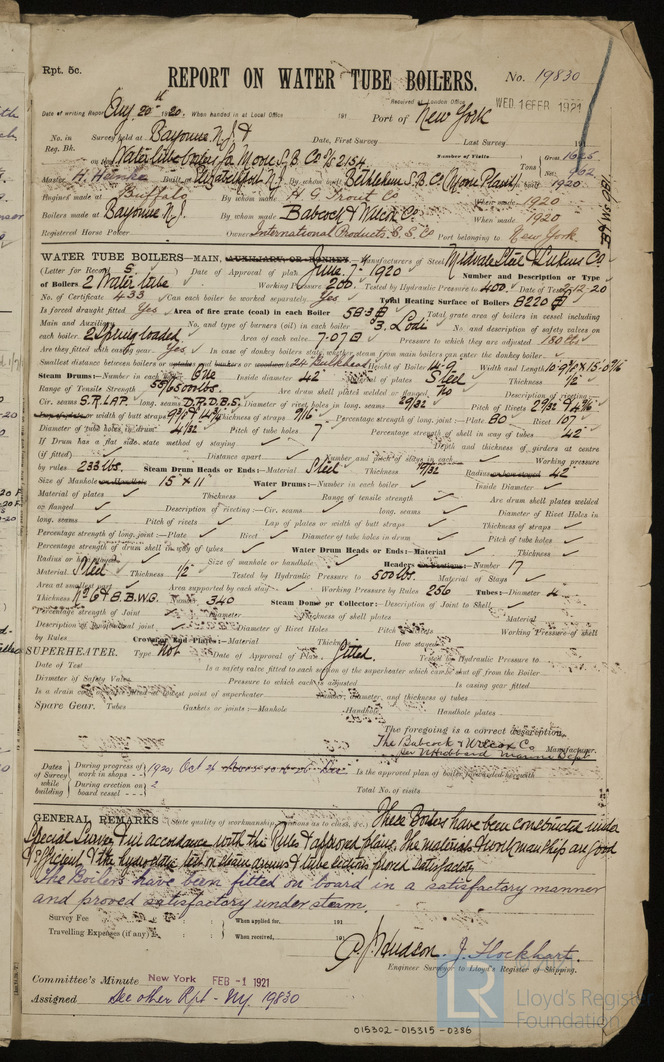 Rpt. 5c.
REPORT ON WATER TUBE BOILERS.
No. 19830
Received at London Office WED. 16 FEB 1921
Date of writing Report Aug. 20th 1920. When handed in at Local Office 191 Port of New York
No. in Reg. Bk. Survey held at Bayonne N.J. & Date, First Survey Last Survey 191
on the Water tube boilers for Moore S.B. Co No 2154 Number of Visits Tons Gross 1625 Net 962
Master H. Heinke Built at Elizabethport N.J. By whom built Bethlehem S.B. Co (Moore Plant) 1920
Engines made at Buffalo By whom made H. G. Trout Co When made 1920
Boilers made at Bayonne N.J. By whom made Babcock & Wilcox Co When made 1920
Registered Horse Power Owners International Products S.S. Co Port belonging to New York
WATER TUBE BOILERS—MAIN, AUXILIARY, OR DONKEY. Manufacturers of Steel Midvale Steel & Lukens Co
(Letter for Record S.) Date of Approval of plan June 7- 1920 Number and Description or Type
of Boilers 2 Water tube Working Pressure 200 Tested by Hydraulic Pressure to 400 Date of Test 2-12-20
No. of Certificate 433 Can each boiler be worked separately Yes Total Heating Surface of Boilers 8220
Is forced draught fitted Yes Area of fire grate (coal) in each Boiler 58.3 Total grate area of boilers in vessel including
Main and Auxiliary No. and type of burners (oil) in each boiler 3. Lodi No. and description of safety valves on
each boiler 2 Spring loaded Area of each valve 7.07 Pressure to which they are adjusted
Are they fitted with easing gear Yes In case of donkey boilers state whether steam from main boilers can enter the donkey boiler
Smallest distance between boilers or uptakes and bunkers or woodwork 24" Bulkhead Height of Boiler 14-9 Width and Length
Steam Drums:—Number in each boiler One Inside diameter 42" Material of plates Steel Thickness 1/2"
Range of Tensile Strength Are drum shell plates welded or flanged No Description of riveting:—
Cir. seams S.R. LAP. long. seams D.R.D.B.S. Diameter of rivet holes in long. seams 29/32 Pitch of Rivets
Lap of plates or width of butt straps Thickness of straps 9/16" Percentage strength of long. joint:—Plate 80 Rivet 107
Diameter of tube holes in drum 4 1/32 Pitch of tube holes 7 Percentage strength of shell in way of tubes 42
If Drum has a flat side state method of staying Depth and thickness of girders at centre
(if fitted) Distance apart Number and pitch of stays in each Working pressure
by rules 233 lbs. Steam Drum Heads or Ends:—Material Steel Thickness 19/32 Radius or how stayed 42"
Size of Manhole or Handhole 15" x 11" Water Drums:—Number in each boiler Inside Diameter
Material of plates Thickness Range of tensile strength Are drum shell plates welded
or flanged Description of riveting:—Cir. seams long. seams Diameter of Rivet Holes in
long. seams Pitch of rivets Lap of plates or width of butt straps Thickness of straps
Percentage strength of long. joint:—Plate Rivet Diameter of tube holes in drum Pitch of tube holes
Percentage strength of drum shell in way of tubes Water Drum Heads or Ends:—Material Thickness
Radius or how stayed Size of manhole or handhole Headers or Sections:—Number 17
Material Steel Thickness 1/2" Tested by Hydraulic Pressure to 500 lbs. Material of Stays
Area at smallest part Area supported by each stay Working Pressure by Rules 256 Tubes:—Diameter 4
Thickness No 6 & 8 B.W.G. Number 340 Steam Dome or Collector:—Description of Joint to Shell
Percentage strength of Joint Diameter Thickness of shell plates Material
Description of longitudinal joint Diameter of Rivet Holes Pitch of Rivets Working Pressure of shell
by Rules Crown or End Plates:—Material Thickness How stayed
SUPERHEATER. Type Not Date of Approval of Plan fitted. Tested by Hydraulic Pressure to
Date of Test Is a safety valve fitted to each section of the superheater which can be shut off from the Boiler
Diameter of Safety Valve Pressure to which each is adjusted Is easing gear fitted
Is a drain cock fitted at lowest point of superheater Number, diameter, and thickness of tubes
Spare Gear. Tubes Gaskets or joints:—Manhole Handhole Handhole plates
The foregoing is a correct description,
The Babcock & Wilcox Co
per W. Hibbard Marine Dept Manufacturer.
Dates of Survey while building During progress of work in shops - - 1920, Oct 26 Is the approved plan of boiler forwarded herewith
During erection on board vessel - - - 2 Total No. of visits
GENERAL REMARKS (State quality of workmanship, opinions as to class, &c.) These Boilers have been constructed under
Special Survey & in accordance with the Rules & approved plans. The materials & workmanship are good
& efficient & the hydraulic test on steam drums & tube sections proved satisfactory
The Boilers have been fitted on board in a satisfactory manner
and proved satisfactory under steam.
Survey Fee When applied for, 191
Travelling Expenses (if any) £ When received, 191
P. J. Hudson. J. Flockhart.
Engineer Surveyor to Lloyd's Register of Shipping.
Committee's Minute New York FEB - 1 1921
Assigned See other Rpt - NY 19830
LR Lloyd's Register Foundation
015302-015315-0386